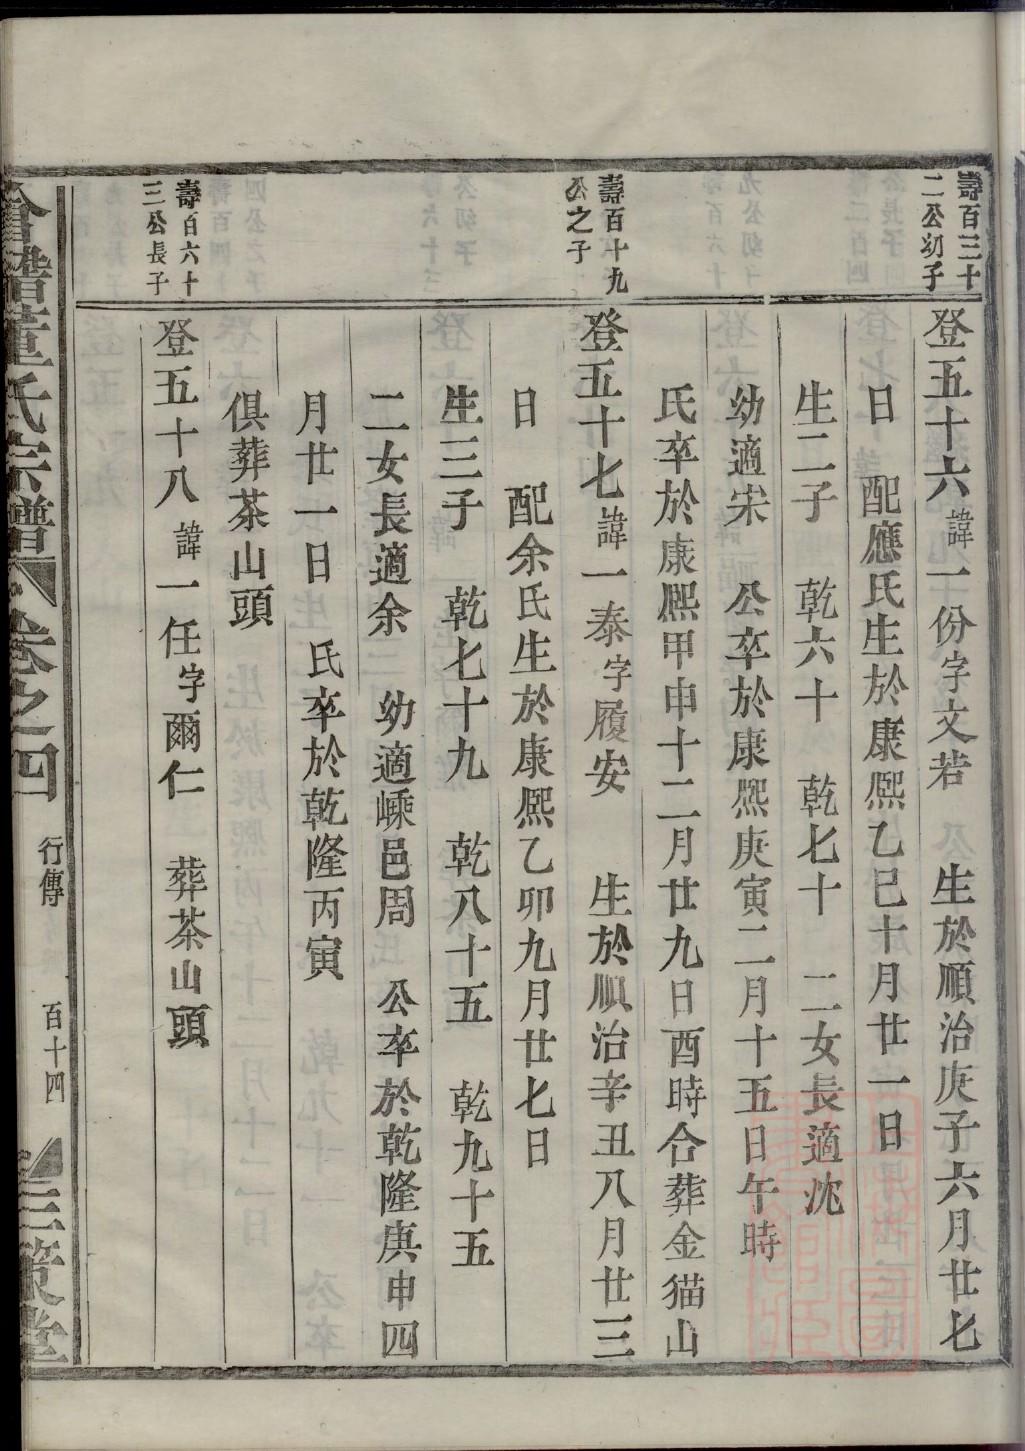 壽百三十
二公幼子
登五十六諱一份字文若 生於順治庚子六月廿七
日 配應氏生於康熙乙巳十月廿一日
生二子 乾六十 乾七十 二女長適沈
幼適宋 公卒於康熙庚寅二月十五日午時
氏卒於康熙甲申十二月廿九日酉時合葬金猫山
壽百十九
公之子
登五十七諱一泰字履安 生於順治辛丑八月廿三
日 配余氏生於康熙乙卯九月廿七日
生三子 乾七十九 乾八十五 乾九十五
二女長適余 幼適嵊邑周 公卒於乾隆庚申四
月廿一日 氏卒於乾隆丙寅
俱葬茶山頭
壽百六十
三公長子
登五十八諱一任字爾仁 葬茶山頭
董氏宗譜 卷之四 行傳 百十四 三策堂